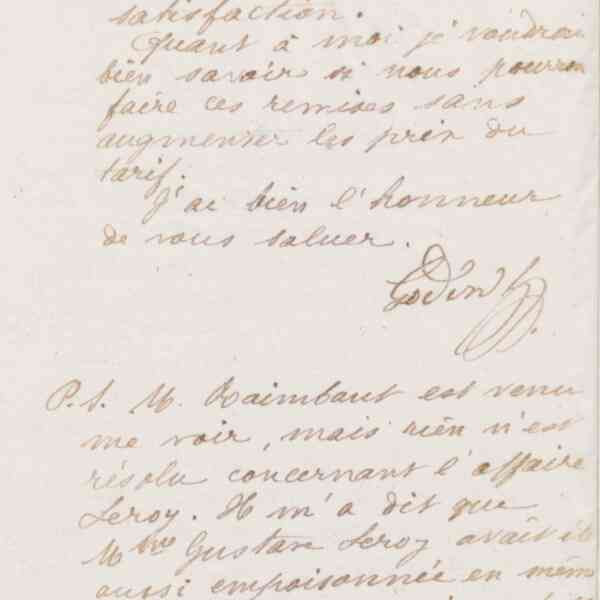 satisfaction.
Quant à moi je voudrais
bien savoir si nous pourrons
faire ces remises sans
augmenter les prix du
tarif.
J'ai bien l'honneur
de vous saluer.
Godin
P.S. M. Raimbaut est venu
me voir, mais rien n'est
résolu concernant l'affaire
Leroy. Il m'a dit que
Mme Gustave Leroy avait été
aussi empoisonnée en même